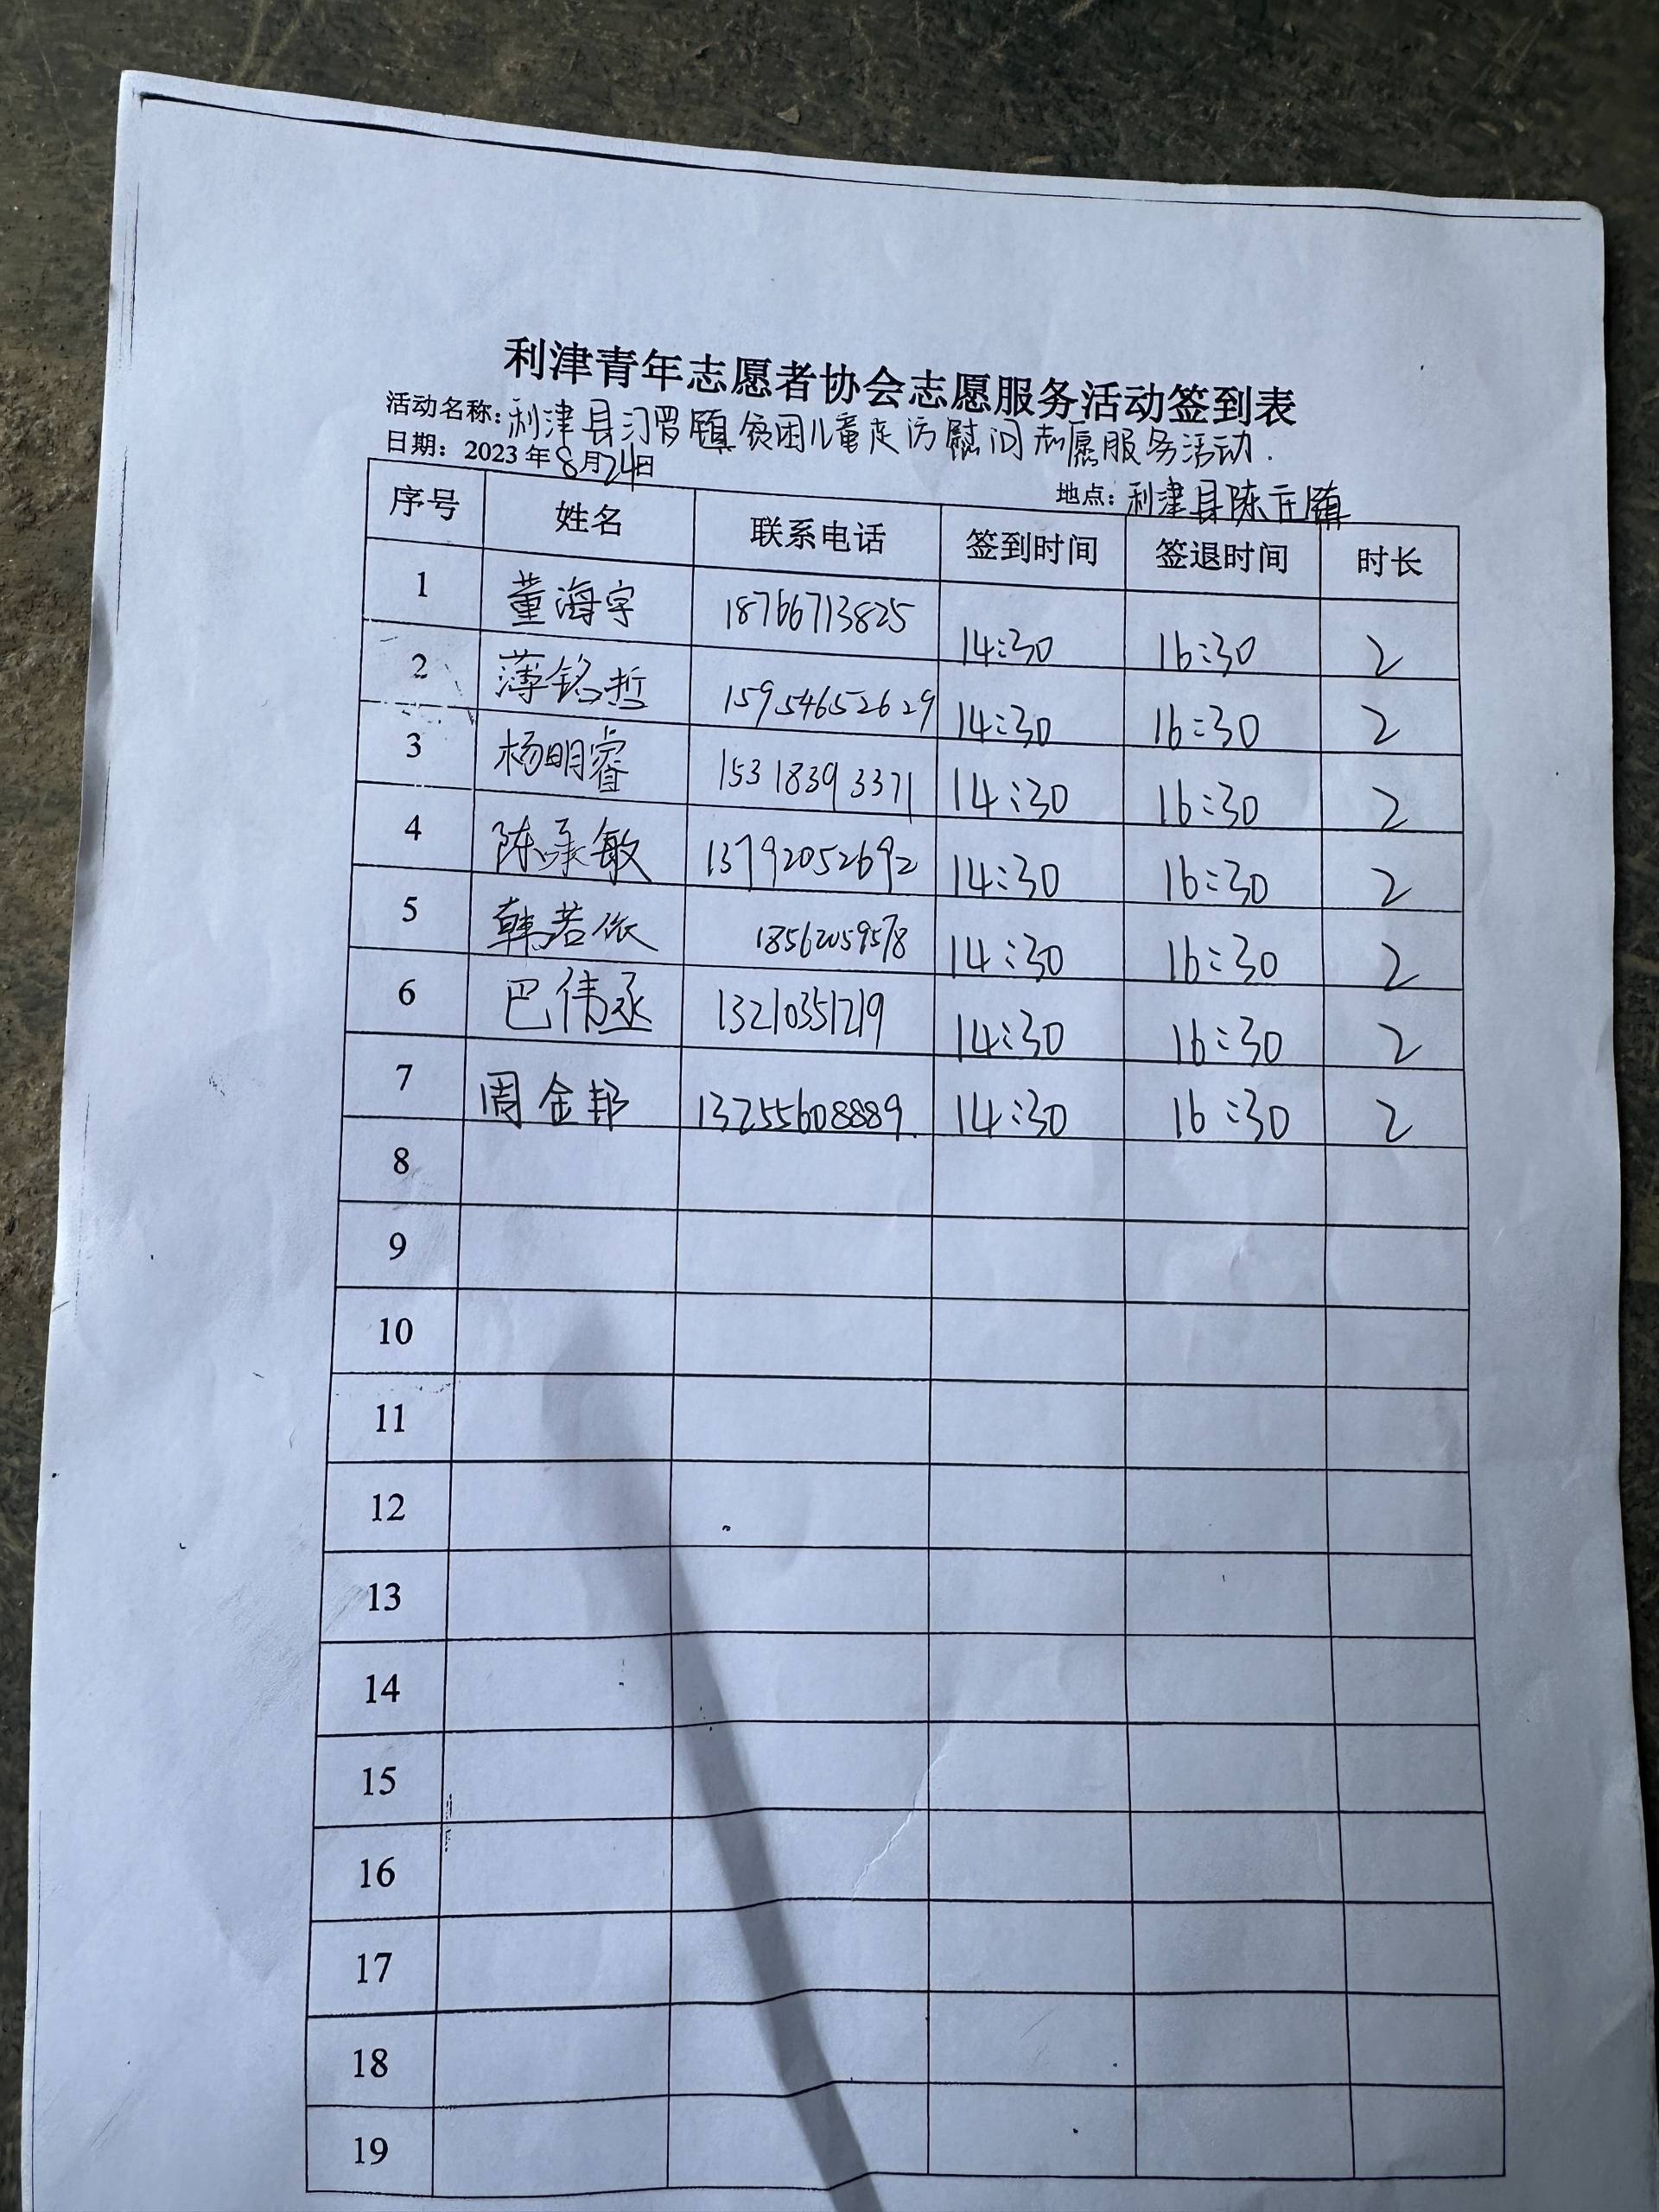 利津青年志愿者协会志愿服务活动签到表
活动名称：利津县汀罗镇贫困儿童走访慰问志愿服务活动.
日期：2023年8月24日
地点：利津县陈庄镇
序号 姓名 联系电话 签到时间 签退时间 时长
1 董海宇 18766713825 14:30 16:30 2
2 薄铭哲 15954652629 14:30 16:30 2
3 杨明睿 15318393371 14:30 16:30 2
4 陈承敏 13792052692 14:30 16:30 2
5 韩若依 18562059578 14:30 16:30 2
6 巴伟丞 13210351219 14:30 16:30 2
7 周金邦 13255608889 14:30 16:30 2
8
9
10
11
12
13
14
15
16
17
18
19